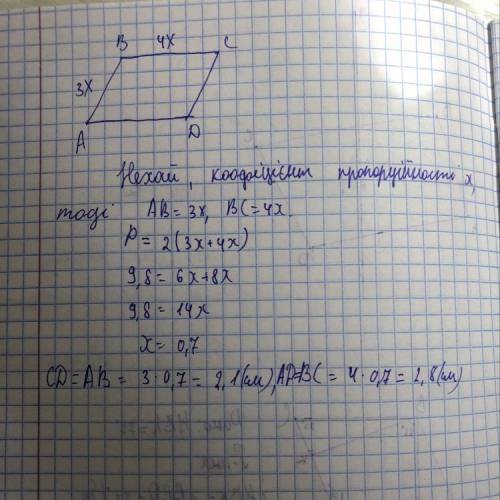 B 4x C
3x
A D
Нехай, коофіцієнт пропорційності x,
тоді AB = 3x, BC = 4x
P = 2(3x+4x)
9,8 = 6x+8x
9,8 = 14x
x = 0,7
CD = AB = 3·0,7 = 2,1(см), AD=BC = 4·0,7 = 2,8(см)